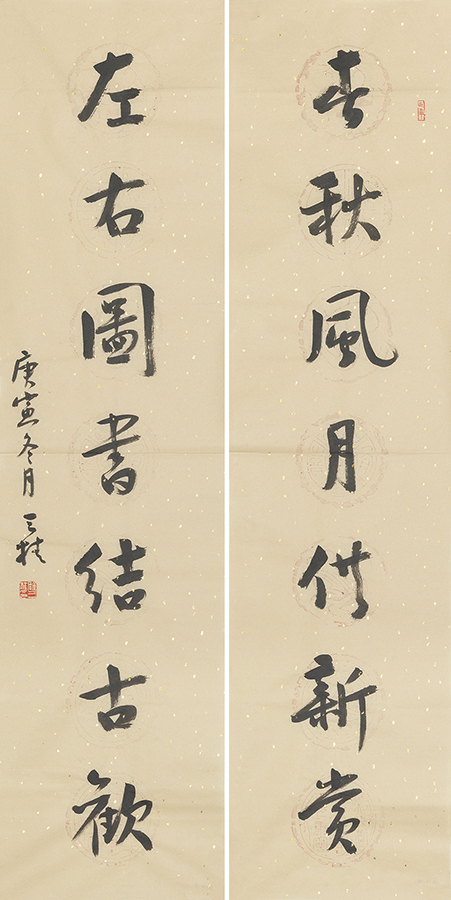 春秋風月供新赏
左右圖書結古歡
庚寅冬月